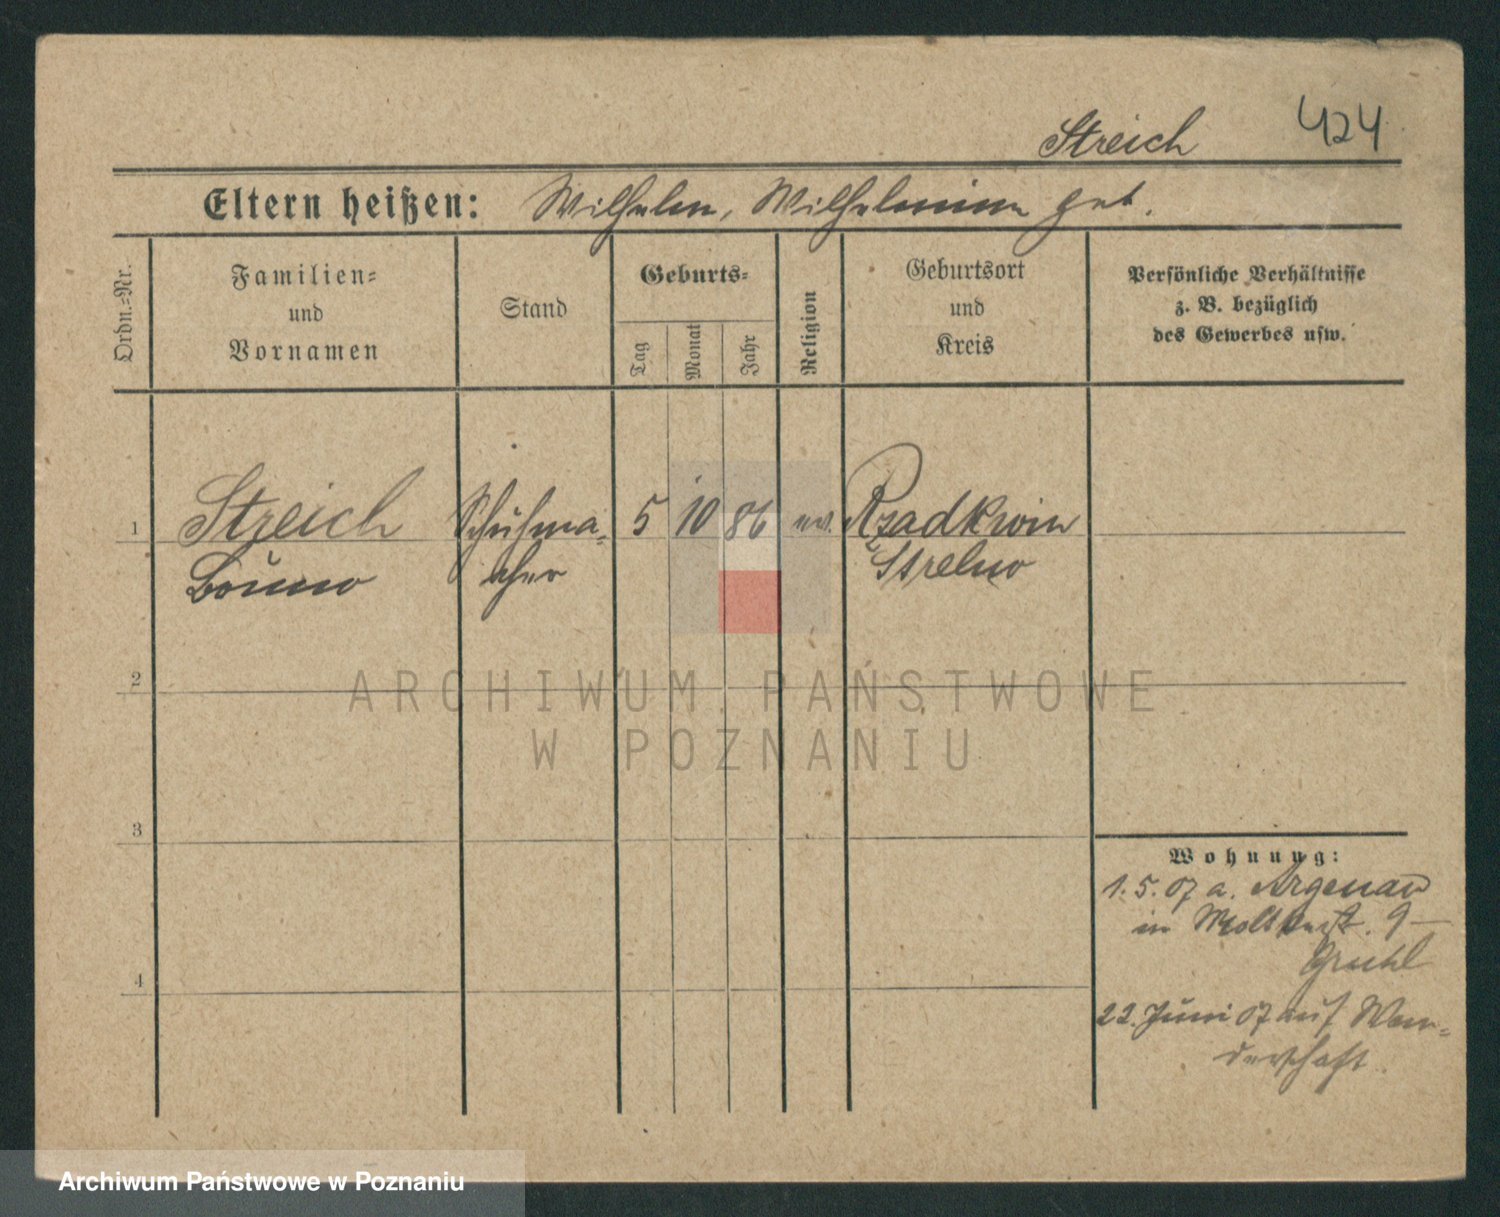 424
Streich
Eltern heißen: Wilhelm, Wilhelmine geb.
Ordn.=Nr.
Familien=
und
Vornamen
Stand
Geburts=
Tag
Monat
Jahr
Religion
Geburtsort
und
Kreis
Persönliche Verhältnisse
z. B. bezüglich
des Gewerbes usw.
1
Streich
Bruno
Schuhma=
cher
5
10
86
ev.
Rzadkwin
Strelno
2
3
4
Wohnung:
1. 5. 07 a. Argenau
in Moltkestr. 9 –
22. Juni 07 auf Wan=
derschaft.
ARCHIWUM PAŃSTWOWE
W POZNANIU
Archiwum Państwowe w Poznaniu